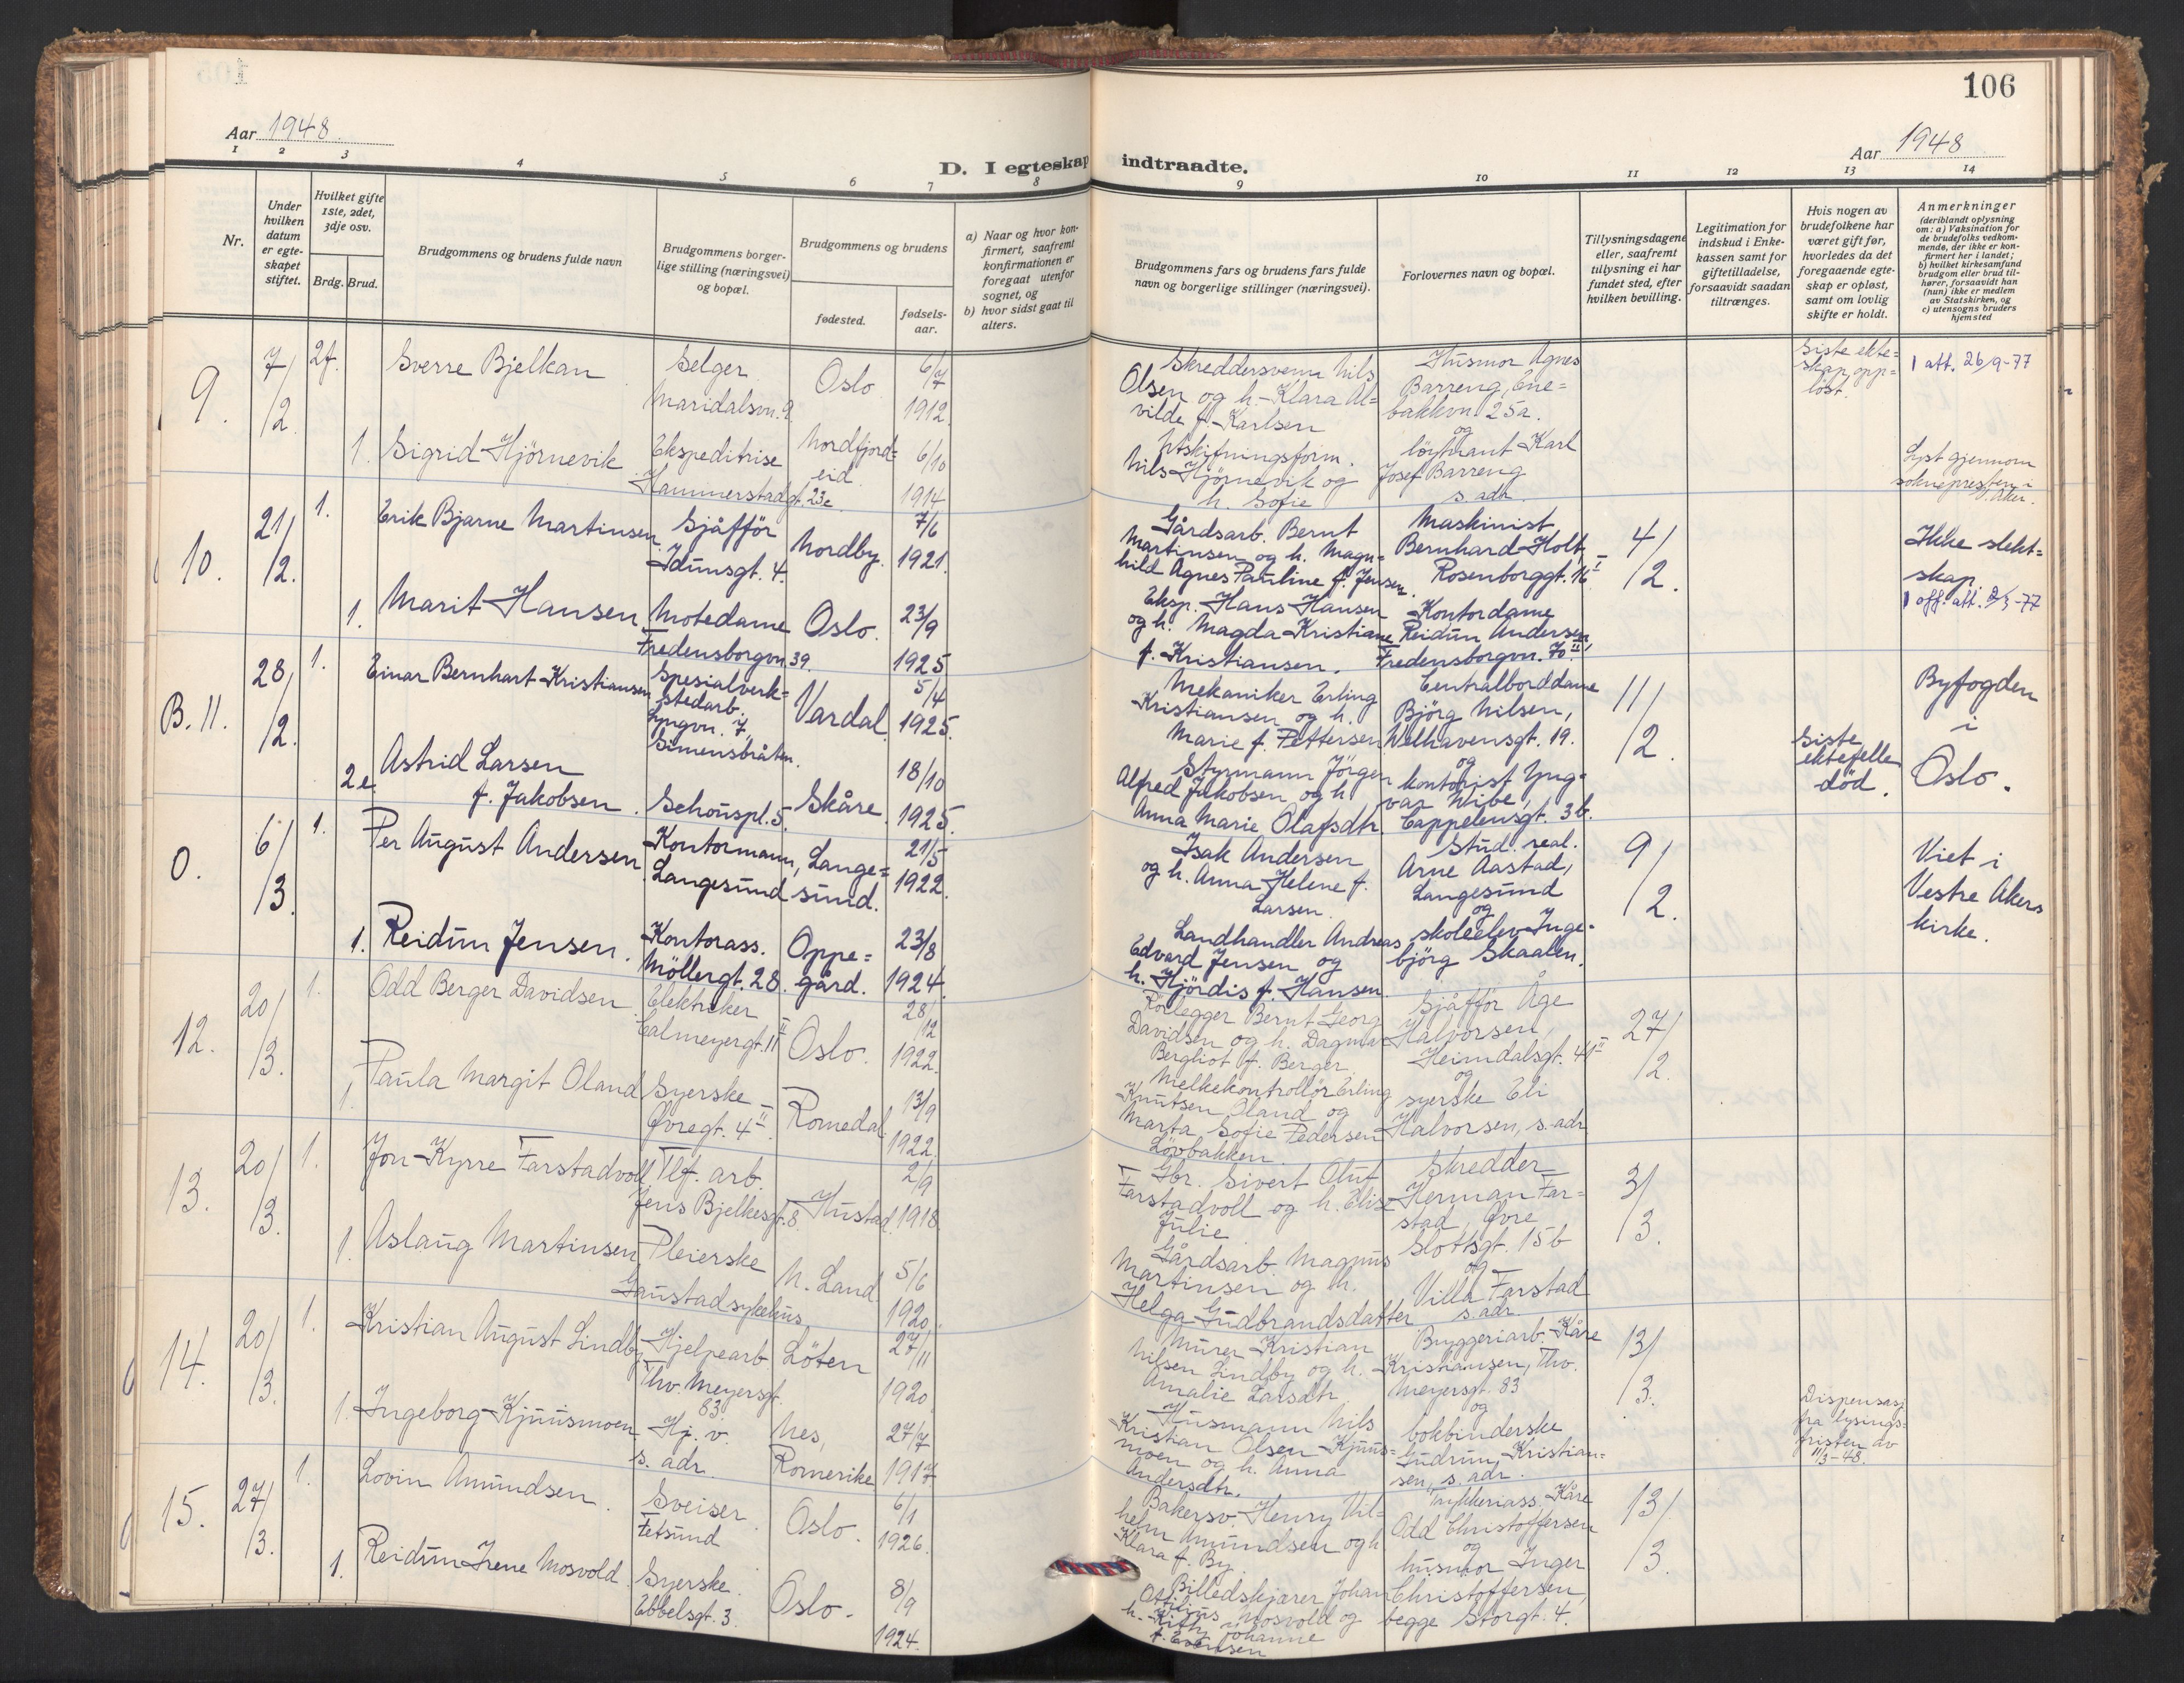 106
Aar 1948.
Aar 1948
D. I egteskap indtraadte.
1 2 3 4 5 6 7 8 9 10 11 12 13 14
Nr.
Under hvilken datum er egteskapet stiftet.
Hvilket gifte 1ste, 2det, 3dje osv.
Brdg. Brud.
Brudgommens og brudens fulde navn
Brudgommens borgerlige stilling (næringsvei) og bopæl.
Brudgommens og brudens
fødested.
fødselsaar.
a) Naar og hvor konfirmert, saafremt konfirmationen er foregaat utenfor sognet, og
b) hvor sidst gaat til alters.
Brudgommens fars og brudens fars fulde navn og borgerlige stillinger (næringsvei).
Forlovernes navn og bopæl.
Tillysningsdagene eller, saafremt tillysning ei har fundet sted, efter hvilken bevilling.
Legitimation for indskud i Enkekassen samt for giftetilladelse, forsaavidt saadan tiltrænges.
Hvis nogen av brudefolkene har været gift før, hvorledes da det foregaaende egteskap er opløst, samt om lovlig skifte er holdt.
Anmerkninger
(deriblandt oplysning om: a) Vaksination for de brudefolks vedkommende, der ikke er konfirmert her i landet; b) hvilket kirkesamfund brudgom eller brud tilhører, forsaavidt han (hun) ikke er medlem av Statskirken, og c) utensogns bruders hjemsted
9. 7/2 2f. Sverre Bjelkan
Selger
Maridalsvn. 9
Oslo 6/7 1912
Skreddersvenn Nils
Olsen og h. Klara Al=
vilde f. Karlsen
Husmor Agnes
Barreng, Ene=
bakkvn. 25a.
og
Siste ekte=
skap opp=
løst.
1 att. 26/9-77
1. Sigrid Hjörnevik
Ekspeditrise
Hammerstadgt. 23c.
Nordfjord=
eid 6/10 1914
Utskiftningsform.
Nils Hjörnevik og
h. Sofie
löytnant Karl
Josef Barreng
s. adr.
Lyst gjennom
soknepresten i
Aker.
10. 21/2. 1. Erik Bjarne Martinsen
Sjåfför
Idunsgt. 4.
Nordby. 7/6 1921.
Gårdsarb. Bernt
Martinsen og h. Magn=
hild Agnes Pauline f. Jensen.
Maskinist
Bernhard Holt,
Rosenborggt. 16 I
4/2.
Ikke slekt=
skap.
1 off. att. 2/3-77
1. Marit Hansen
Motedame
Fredensborgvn. 39.
Oslo. 23/9 1925
Eksp. Hans Hansen
og h. Magda Kristiane
f. Kristiansen.
Kontordame
Reidun Andersen,
Fredensborgvn. 70 II.
B. 11. 28/2. 1. Einar Bernhart Kristiansen
Spesialverk=
stedarb.
Lyngvn. 7,
Simensbråten.
Vardal 5/4 1925.
Mekaniker Erling
Kristiansen og h.
Marie f. Pettersen
Centralborddame
Björg Nilsen,
Welhavensgt. 19.
og
11/2.
Byfogden
i
Oslo.
2e. Astrid Larsen
f. Jakobsen.
Schouspl. 5.
Skåre 18/10 1925.
Styrmann Jörgen
Alfred Jakobsen og h.
Anna Marie Olafsdtr.
kontorist Yng=
var Wibe,
Cappelensgt. 3b.
Siste
ektefelle
död.
0. 6/3. 1. Per August Andersen
Kontormann,
Langesund
Lange=
sund. 21/5 1922.
Isak Andersen
og h. Anna Helene f.
Larsen.
Stud. real.
Arne Aastad,
Langesund
og
9/2.
Viet i
Vestre Akers
kirke.
1. Reidun Jensen.
Kontorass.
Möllergt. 28.
Oppe=
gård. 23/8 1924.
Landhandler Andreas
Edvard Jensen og
h. Hjördis f. Hansen.
skoleelev Inge=
björg Skaalen.
12. 20/3. 1. Odd Berger Davidsen
Elektriker
Calmeyergt. 11 II
Oslo. 28/12 1922.
Rörlegger Bernt Georg
Davidsen og h. Dagmar
Bergliot f. Berger.
Sjåfför Åge
Halvorsen,
Heimdalsgt. 41 II
og
27/2.
1. Paula Margit Oland
Syerske
Övregt. 4 II.
Romedal. 13/9 1922.
Melkekontrollör Erling
Knutsen Oland og
Marta Sofie Pedersen
Lövbakken.
syerske Eli
Halvorsen, s. adr.
13. 20/3. 1. Jon Kyrre Farstadvoll
Tlf. arb.
Jens Bjelkesgt. 8
Hustad 2/9 1918.
Gbr. Sivert Olut
Farstadvoll og h. Elise
Julie
Skredder
Herman Far=
stad, Övre
Slottsgt. 15b
og
3/3.
1. Aslaug Martinsen
Pleierske
Gaustad sykehus.
N. Land. 5/6 1920.
Gårdsarb. Magnus
Martinsen og h.
Helga Gudbrandsdatter
Villa Farstad
s. adr.
14. 20/3. 1. Kristian August Lindby
Hjelpearb.
Thv. Meyersgt.
83.
Löten 27/11 1920.
Murer Kristian
Nilsen Lindby og h.
Amalie Larsdtr.
Bryggeriarb. Kåre
Kristiansen, Thv.
Meyersgt. 83
og
13/3.
1. Ingeborg Kjuusmoen
Hj. v.
s. adr.
Nes,
Romerike 27/7 1917
Husmann Nils
Kristian Olsen Kjuus=
moen og h. Anna
Andersdtr.
bokbinderske
Gudrun Kristian=
sen, s. adr.
Dispensasj.
fra lysings=
fristen av
11/3-48.
15. 27/3. 1. Lovin Amundsen.
Sveiser.
Fetsund
Oslo. 6/1 1926.
Bakersv. Henry Vil=
helm Amundsen og h.
Klara f. By.
Trykkeriass. Kåre
Odd Christoffersen
og
13/3.
1. Reidun Irene Mosvold.
Syerske.
Ebbelsgt. 3.
Oslo. 8/9 1924.
Billedskjærer Johan
Mosvold og
h. Kitty Johanne
f. Evensen
husmor Inger
Christoffersen,
begge Storgt. 4.